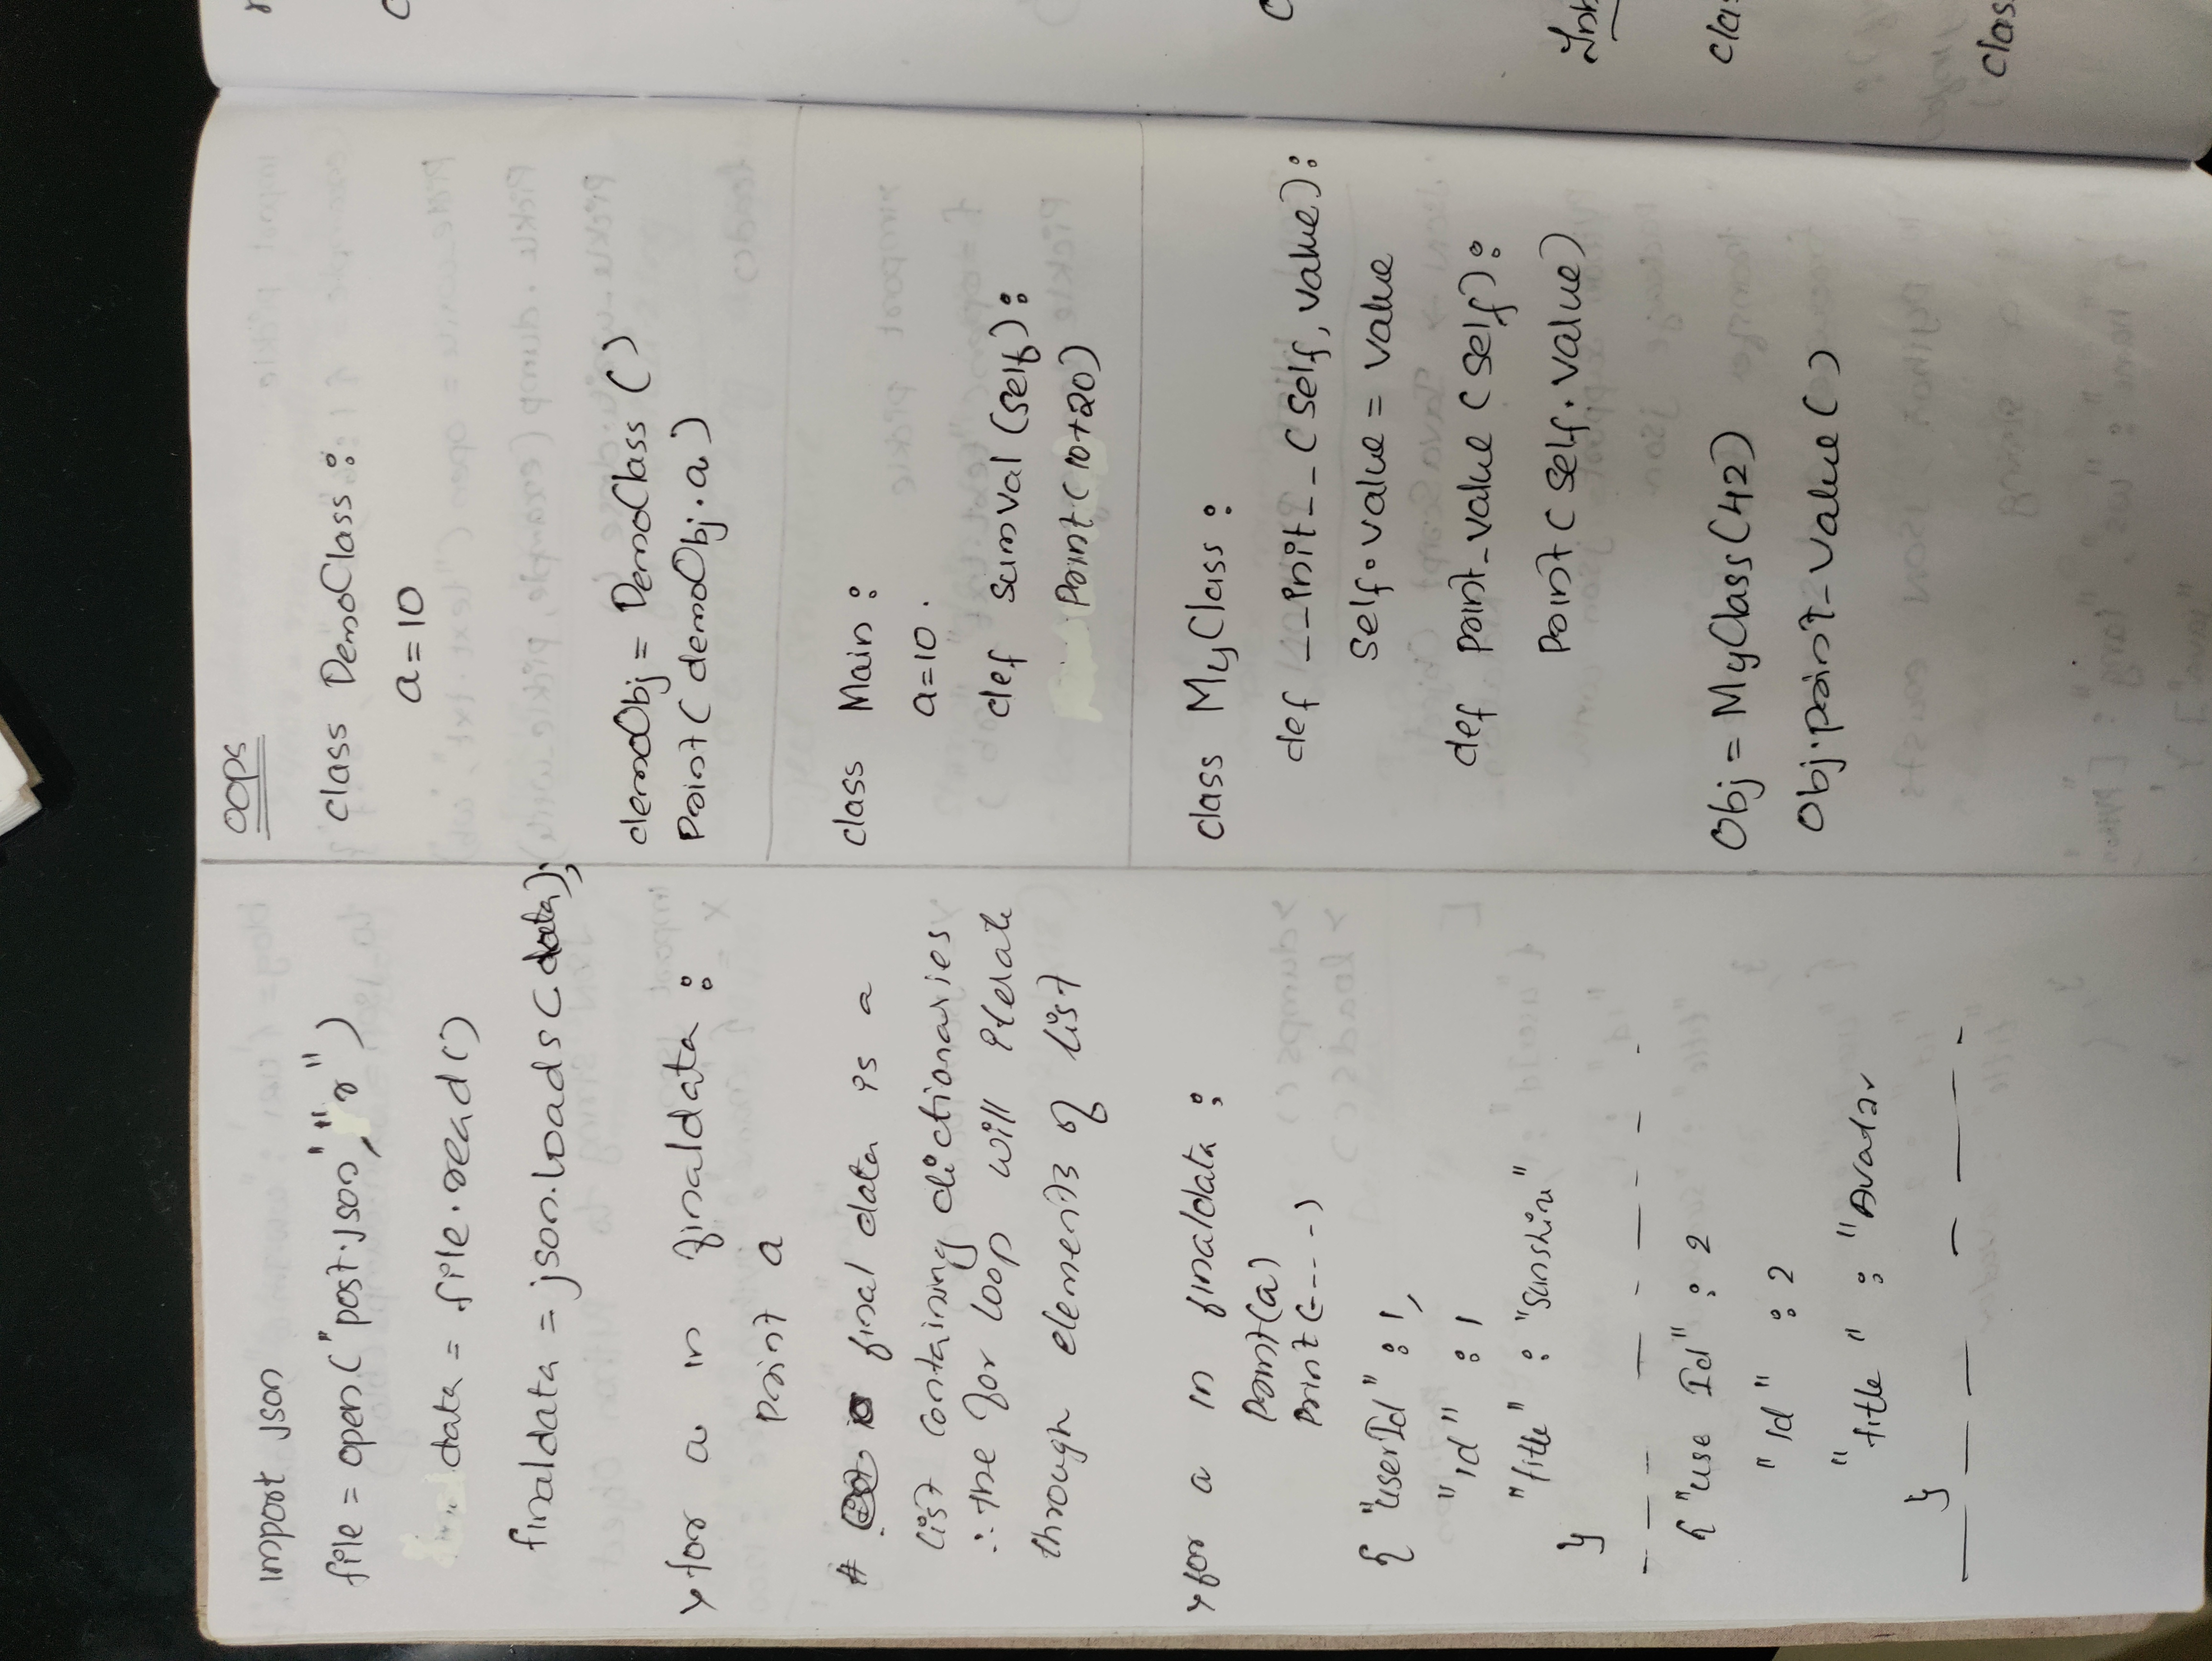 import json
file = open("post.json", "r")
data = file.read()
finaldata = json.loads(data);
for a in finaldata :
print a
# final data is a
list containing dictionaries
∴ the for loop will iterate
through elements of list
for a in finaldata :
Print(a)
Print(----)
{ "userId" : 1,
"id" : 1
"title" : "Sunshine"
}
{ "use Id" : 2
"Id" : 2
"title" : "Avatar
}
OOPS
class DemoClass :
a=10
demoObj = DemoClass ()
Print( demoObj.a )
class Main :
a=10 .
def sumVal (self) :
Print( 10+20)
class MyClass :
def __init__(self, value) :
self.value = value
def print_value (self) :
Print( self.value)
Obj = MyClass(42)
Obj.print_value()